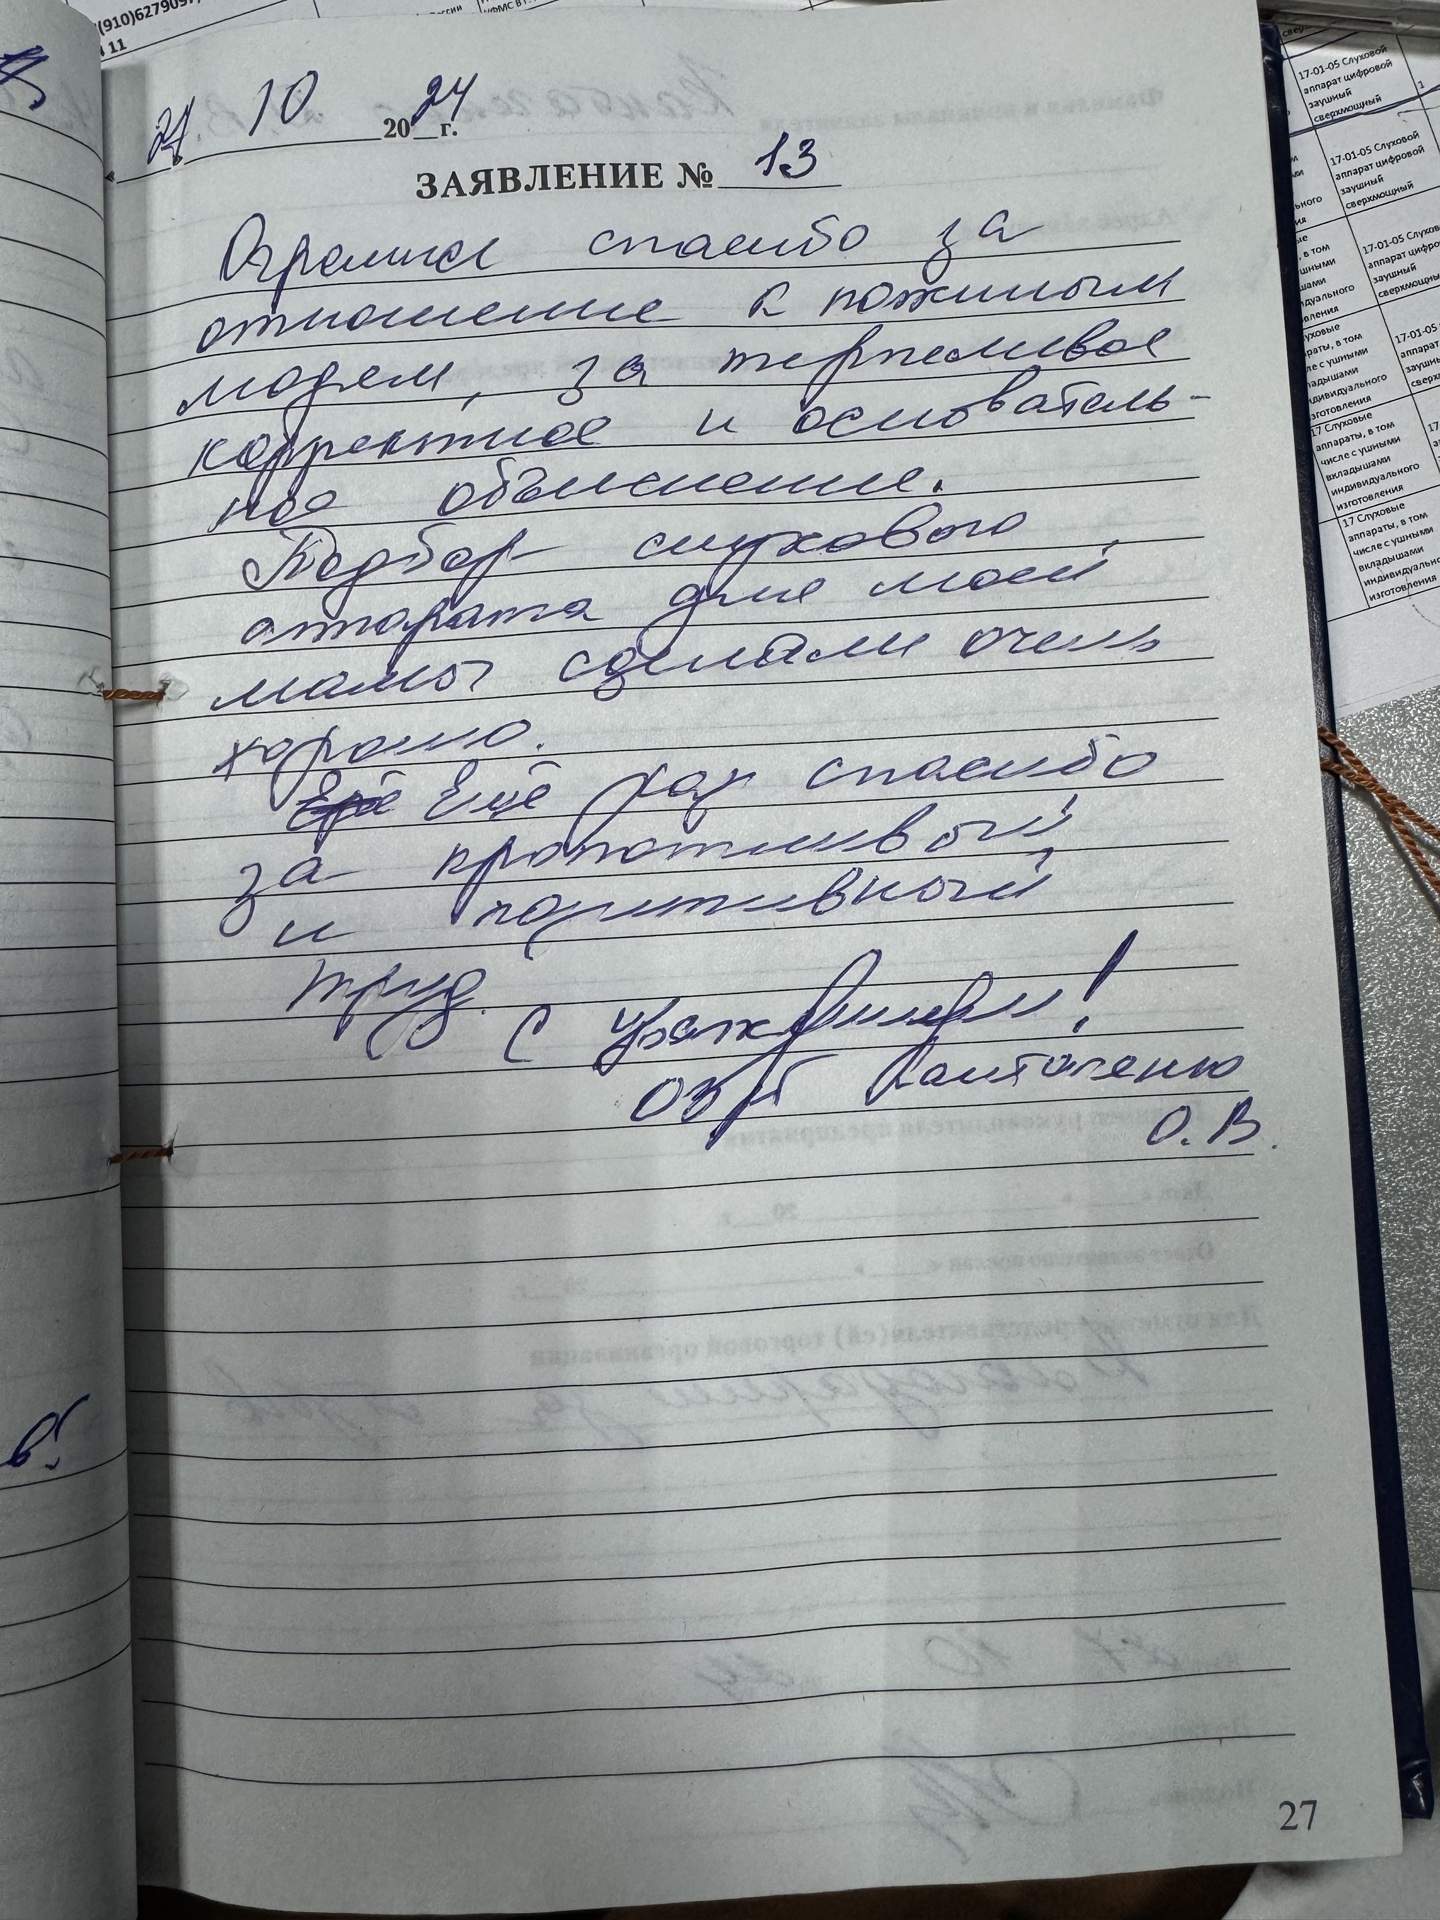 (910)6279097,
11
21 10 2024 г.
ЗАЯВЛЕНИЕ № 13
Огромное спасибо за
отношение к пожилым
людям, за терпеливое
корректное и основатель-
ное объяснение.
Подбор слухового
аппарата для моей
мамы сделали очень
хорошо.
Ещё раз спасибо
за кропотливый
и позитивный
труд.
С уважением!
О.В.
27
17-01-05 Слуховой
аппарат цифровой
заушный
сверхмощный
1
17-01-05 Слуховой
аппарат цифровой
заушный
сверхмощный
17 Слуховые
аппараты, в том
числе с ушными
вкладышами
индивидуального
изготовления
17 Слуховые
аппараты, в том
числе с ушными
вкладышами
изготовления